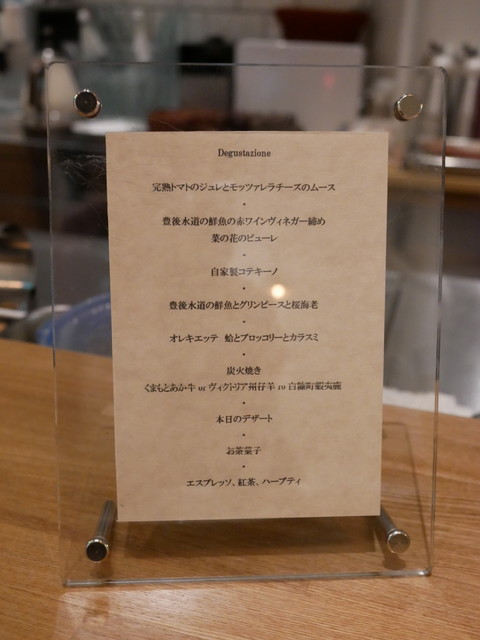 Degustazione
完熟トマトのジュレとモッツァレラチーズのムース
・
豊後水道の鮮魚の赤ワインヴィネガー締め
菜の花のピューレ
・
自家製コテキーノ
・
豊後水道の鮮魚とグリンピースと桜海老
・
オレキエッテ 蛤とブロッコリーとカラスミ
・
炭火焼き
くまもとあか牛 or ヴィクトリア州仔羊 ro 白糠町蝦夷鹿
・
本日のデザート
・
お茶菓子
・
エスプレッソ、紅茶、ハーブティ